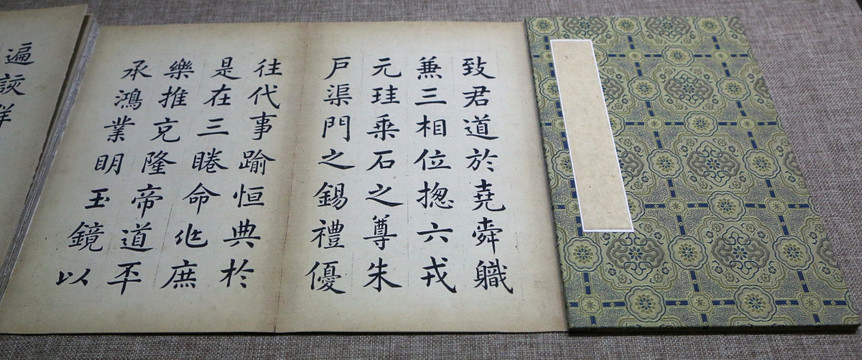 致君道於堯舜軄
兼三相位揔六戎
元珪乘石之尊朱
戶渠門之錫禮優
往代事踰恒典於
是在三睠命兆庶
樂推克隆帝道丕
承鴻業明玉鏡以
遍